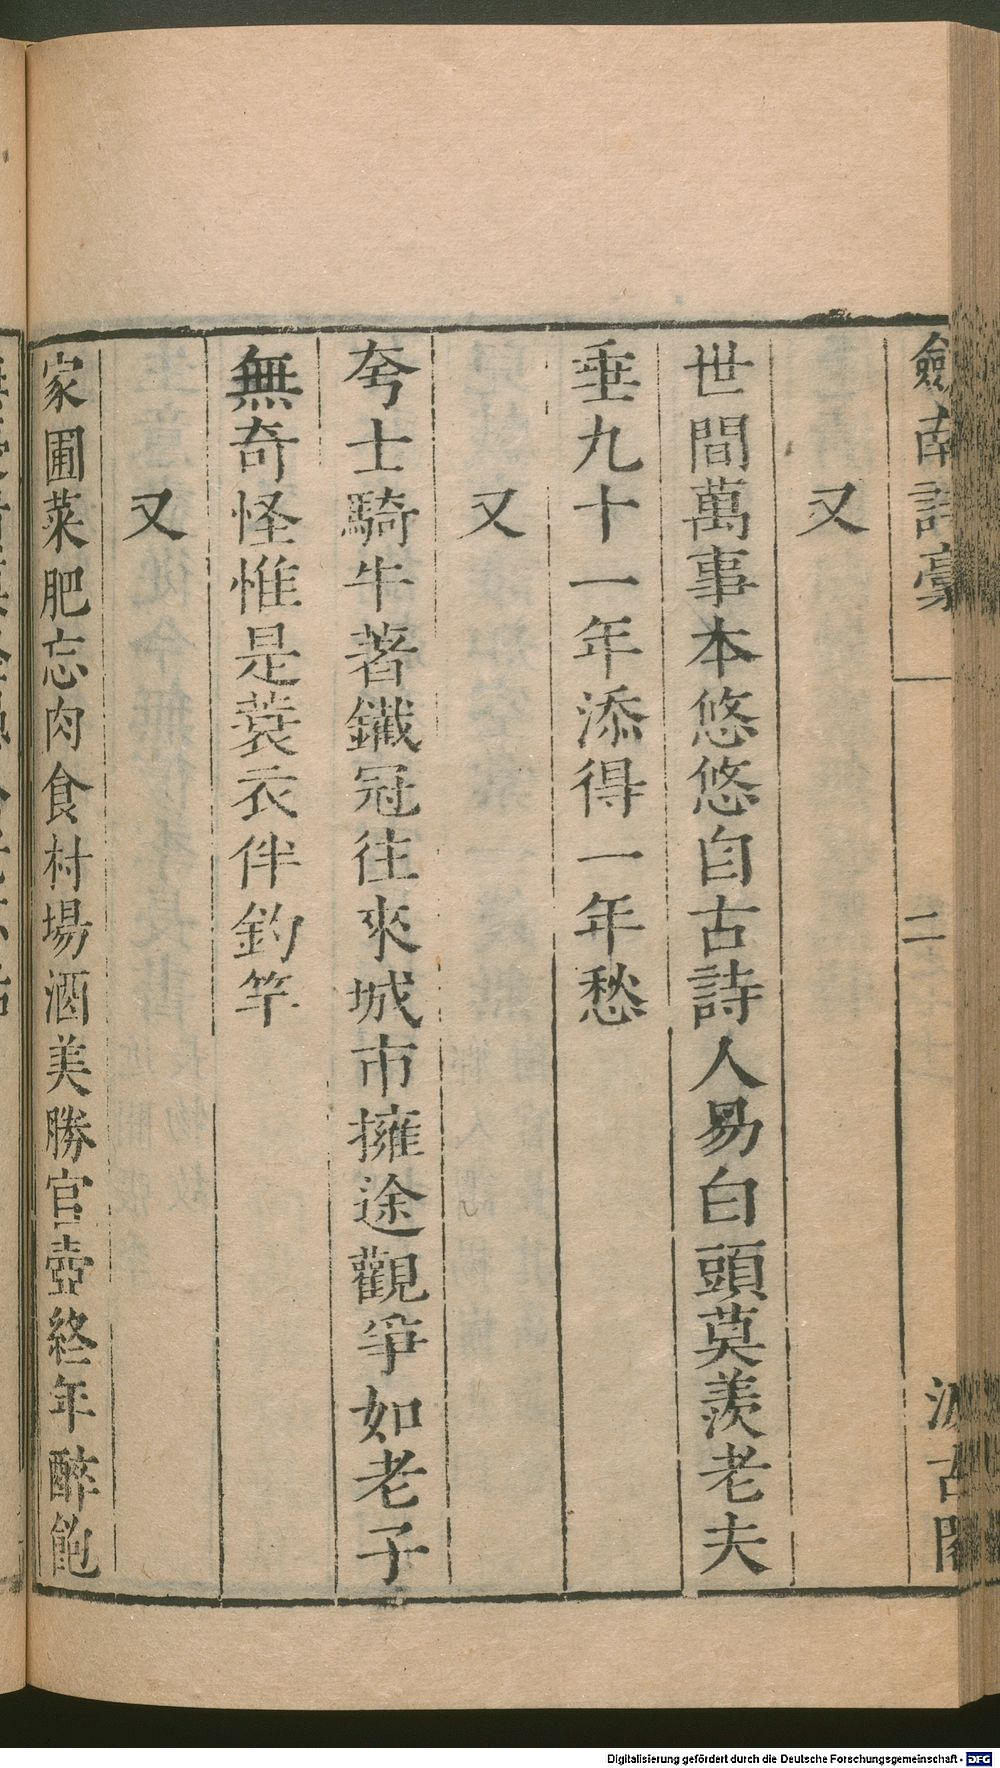 劒南詩稾
二
汲古閣
又
世間萬事本悠悠自古詩人易白頭莫羨老夫
垂九十一年添得一年愁
又
夸士騎牛著鐵冠往來城市擁途觀爭如老子
無奇怪惟是蓑衣伴釣竿
又
家圃菜肥忘肉食村場酒美勝官壺終年醉飽
Digitalisierung gefördert durch die Deutsche Forschungsgemeinschaft - DFG